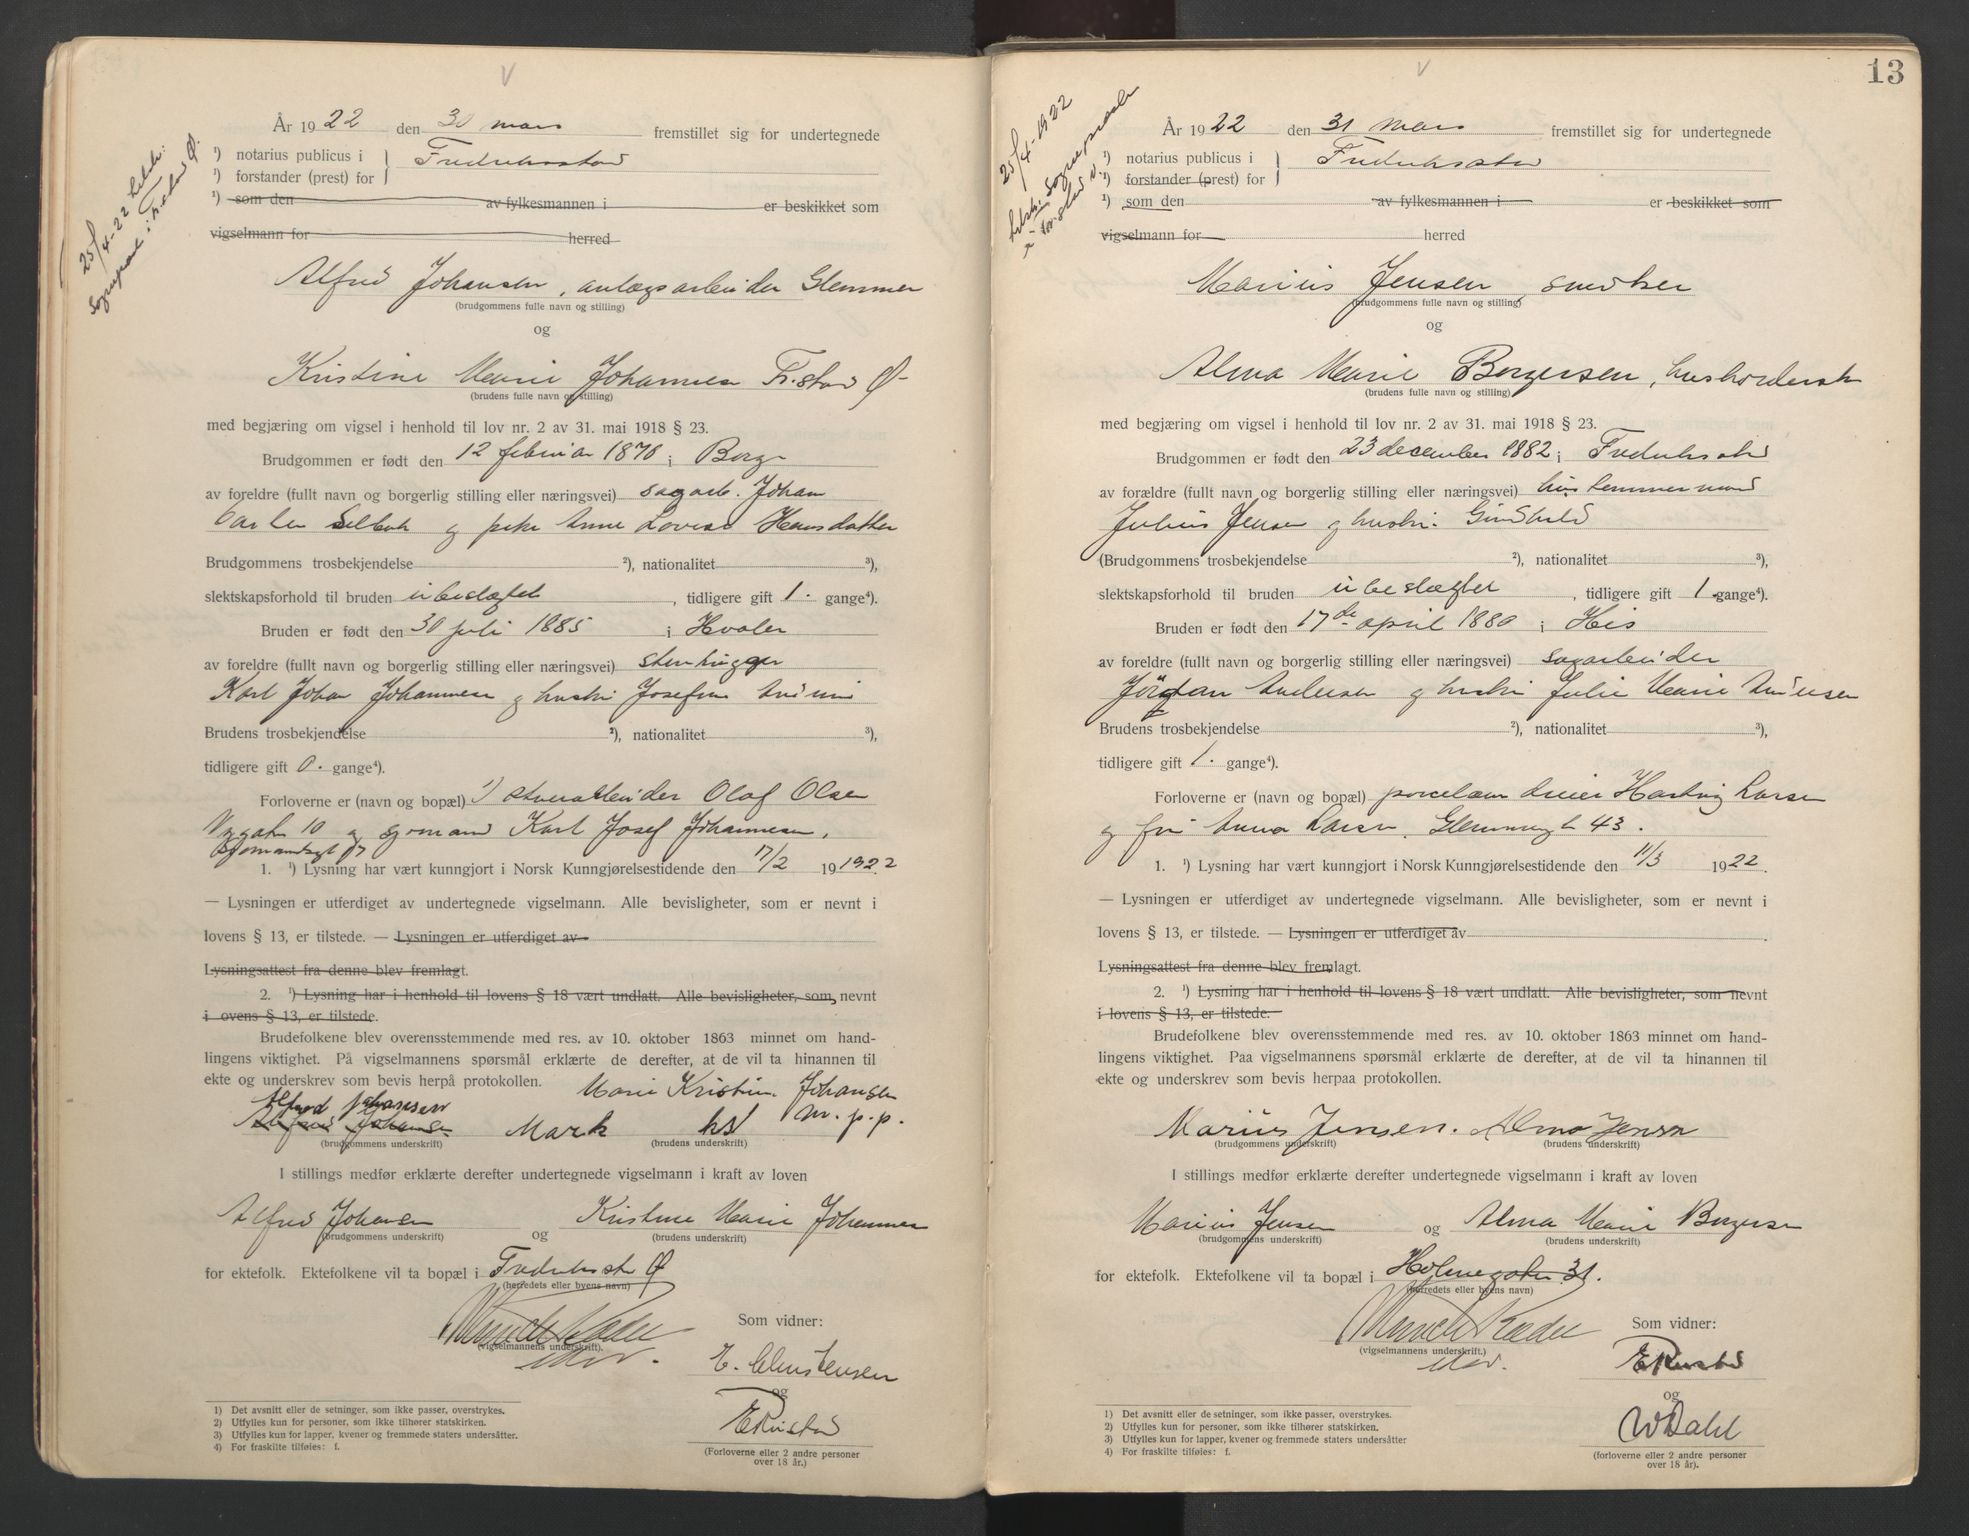 25/4-22
Sogneprest i Fr.stad Ø.
År 1922 den 30 mars fremstillet sig for undertegnede
¹) notarius publicus i } Fredriksstad
¹) forstander (prest) for
¹) som den av fylkesmannen i er beskikket som
vigselmann for herred
Alfred Johansen, anlægsarbeider Glemmen
(brudgommens fulle navn og stilling)
og
Kristine Marie Johannesen Fr.stad Ø-
(brudens fulle navn og stilling)
med begjæring om vigsel i henhold til lov nr. 2 av 31. mai 1918 § 23.
Brudgommen er født den 12 februar 1870 i Borge
av foreldre (fullt navn og borgerlig stilling eller næringsvei) sagarb. Johan
Carlsen Selbak og pike Anne Lovise Hansdatter
Brudgommens trosbekjendelse ²), nationalitet ³),
slektskapsforhold til bruden ubeslægtet, tidligere gift 1. gange⁴).
Bruden er født den 30 juli 1885 i Hvaler
av foreldre (fullt navn og borgerlig stilling eller næringsvei) stenhugger
Karl Johan Johannesen og hustru Josefine
Brudens trosbekjendelse ²), nationalitet ³),
tidligere gift 0. gange⁴).
Forloverne er (navn og bopæl) ¹) stuerarbeider Olaf Olsen
Nygatn 10 og sjømand Karl Josef Johannesen,
1. ¹) Lysning har vært kunngjort i Norsk Kunngjørelsestidende den 17/2 19 1922
— Lysningen er utferdiget av undertegnede vigselmann. Alle bevisligheter, som er nevnt i
lovens § 13, er tilstede. — Lysningen er utferdiget av
Lysningsattest fra denne blev fremlagt.
2. ¹) Lysning har i henhold til lovens § 18 vært undlatt. Alle bevisligheter, som nevnt
i ovens § 13, er tilstede.
Brudefolkene blev overensstemmende med res. av 10. oktober 1863 minnet om hand-
lingens viktighet. På vigselmannens spørsmål erklærte de derefter, at de vil ta hinannen til
ekte og underskrev som bevis herpå protokollen. Marie Kristine Johansen
Alfred Johansen m. p. p.
Alfred Johansen Mark
(brudgommens underskrift) (brudens underskrift)
I stillings medfør erklærte derefter undertegnede vigselmann i kraft av loven
Alfred Johansen og Kristine Marie Johannesen
(brudgommens underskrift) (brudens underskrift)
for ektefolk. Ektefolkene vil ta bopæl i Fredriksstad Ø
(herredets eller byens navn)
Som vidner:
(vigselmannens underskrift).
E. Christensen
og
(Forloverne eller 2 andre personer
over 18 år.)
1) Det avsnitt eller de setninger, som ikke passer, overstrykes.
2) Utfylles kun for personer, som ikke tilhører statskirken.
3) Utfylles kun for lapper, kvener og fremmede staters undersåtter.
4) For fraskilte tilføies: f.
13
25/4-1922
Sogneprest
År 1922 den 31 mars fremstillet sig for undertegnede
¹) notarius publicus i } Fredriksstad
¹) forstander (prest) for
¹) som den av fylkesmannen i er beskikket som
vigselmann for herred
Marius Jensen, snedker
(brudgommens fulle navn og stilling)
og
Alma Marie Borgersen, husholderske
(brudens fulle navn og stilling)
med begjæring om vigsel i henhold til lov nr. 2 av 31. mai 1918 § 23.
Brudgommen er født den 23 december 1882 i Fredriksstad
av forældre (fullt navn og borgerlig stilling eller næringsvei) hustømmermand
Julius Jensen og hustru Gunhild
(Brudgommens trosbekjendelse ²), nationalitet ³),
slektskapsforhold til bruden ubeslægtet, tidligere gift 1. gange⁴).
Bruden er født den 17de april 1880 i His
av foreldre (fullt navn og borgerlig stilling eller næringsvei) sagarbeider
Jørgan Andersen og hustru Julie Marie Andersen
Brudens trosbekjendelse ²), nationalitet ³),
tidligere gift 1. gange⁴).
Forloverne er (navn og bopæl) porcelæn dreier Hartvig Larsen
og fru Anna Larsen, Glemmengt 43.
1. ¹) Lysning har vært kunngjort i Norsk Kunngjørelsestidende den 11/3 1922.
— Lysningen er utferdiget av undertegnede vigselmann. Alle bevisligheter, som er nevnt i
lovens § 13, er tilstede. — Lysningen er utferdiget av
Lysningsattest fra denne blev fremlagt.
2. ¹) Lysning har i henhold til lovens § 18 vært undlatt. Alle bevisligheter, som nevnt
i lovens § 13, er tilstede.
Brudefolkene blev overensstemmende med res. av 10. oktober 1863 minnet om hand-
lingens viktighet. Paa vigselmannens spørsmål erklærte de derefter, at de vil ta hinannen til
ekte og underskrev som bevis herpaa protokollen.
Marius Jensen. Alma Jensen
(brudgommens underskrift) (brudens underskrift)
I stillings medfør erklærte derefter undertegnede vigselmann i kraft av loven
Marius Jensen og Alma Marie Borgersen
(brudgommens underskrift) (brudens underskrift)
for ektefolk. Ektefolkene vil ta bopæl i Holmegaten 31.
(herredets eller byens navn)
Som vidner:
(vigselmannens underskrift.)
og
W Dahl
(forloverne eller 2 andre personer
over 18 år).
1) Det avsnitt eller de setninger, som ikke passer, overstrykes.
2) Utfylles kun for personer, som ikke tilhører statskirken.
3) Utfylles kun for lapper, kvener og fremmede staters undersåtter
4) For fraskilte tilføies: f.